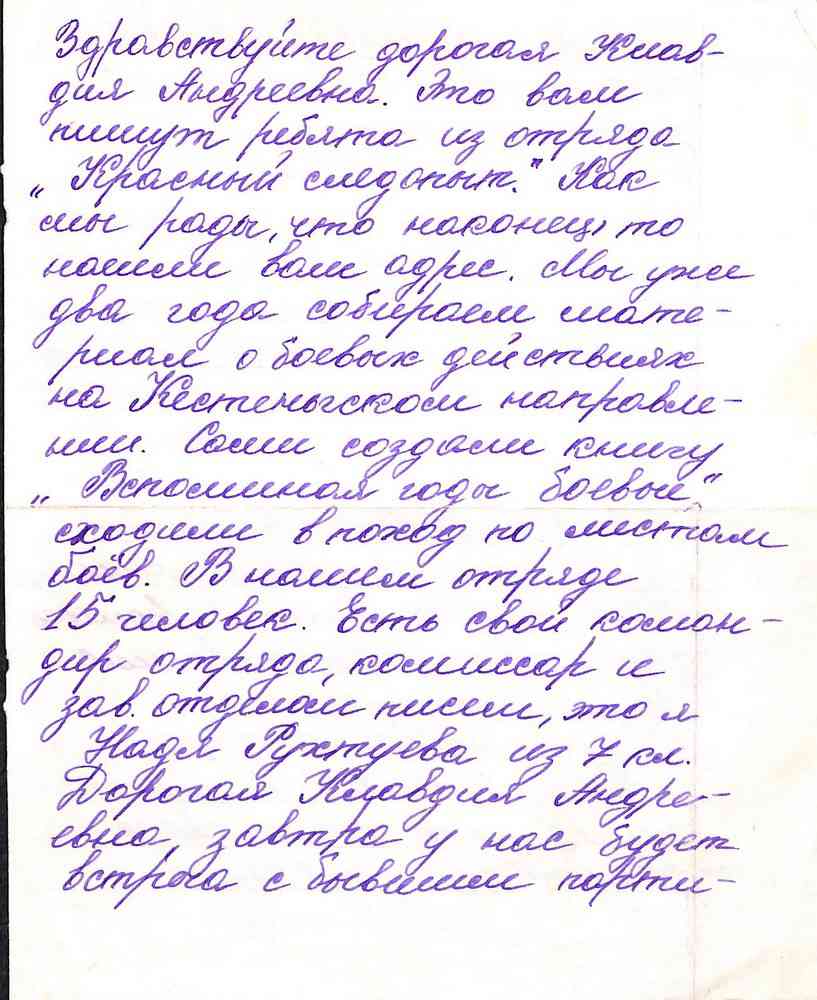 Здравствуйте дорогая Клав-
дия Андреевна. Это вам
пишут ребята из отряда
„Красный следопыт." Как
мы рады, что наконец, то
нашли ваш адрес. Мы уже
два года собираем мате-
риал о боевых действиях
на Кестеньгском направле-
нии. Сами создали книгу
„Вспоминая годы боевые"
сходили в поход по местам
боёв. В нашем отряде
15 человек. Есть свой коман-
дир отряда, комиссар и
зав. отделом писем, это я
Надя Рухтуева из 7 кл.
Дорогая Клавдия Андре-
евна, завтра у нас будет
встреча с бывшими парти-